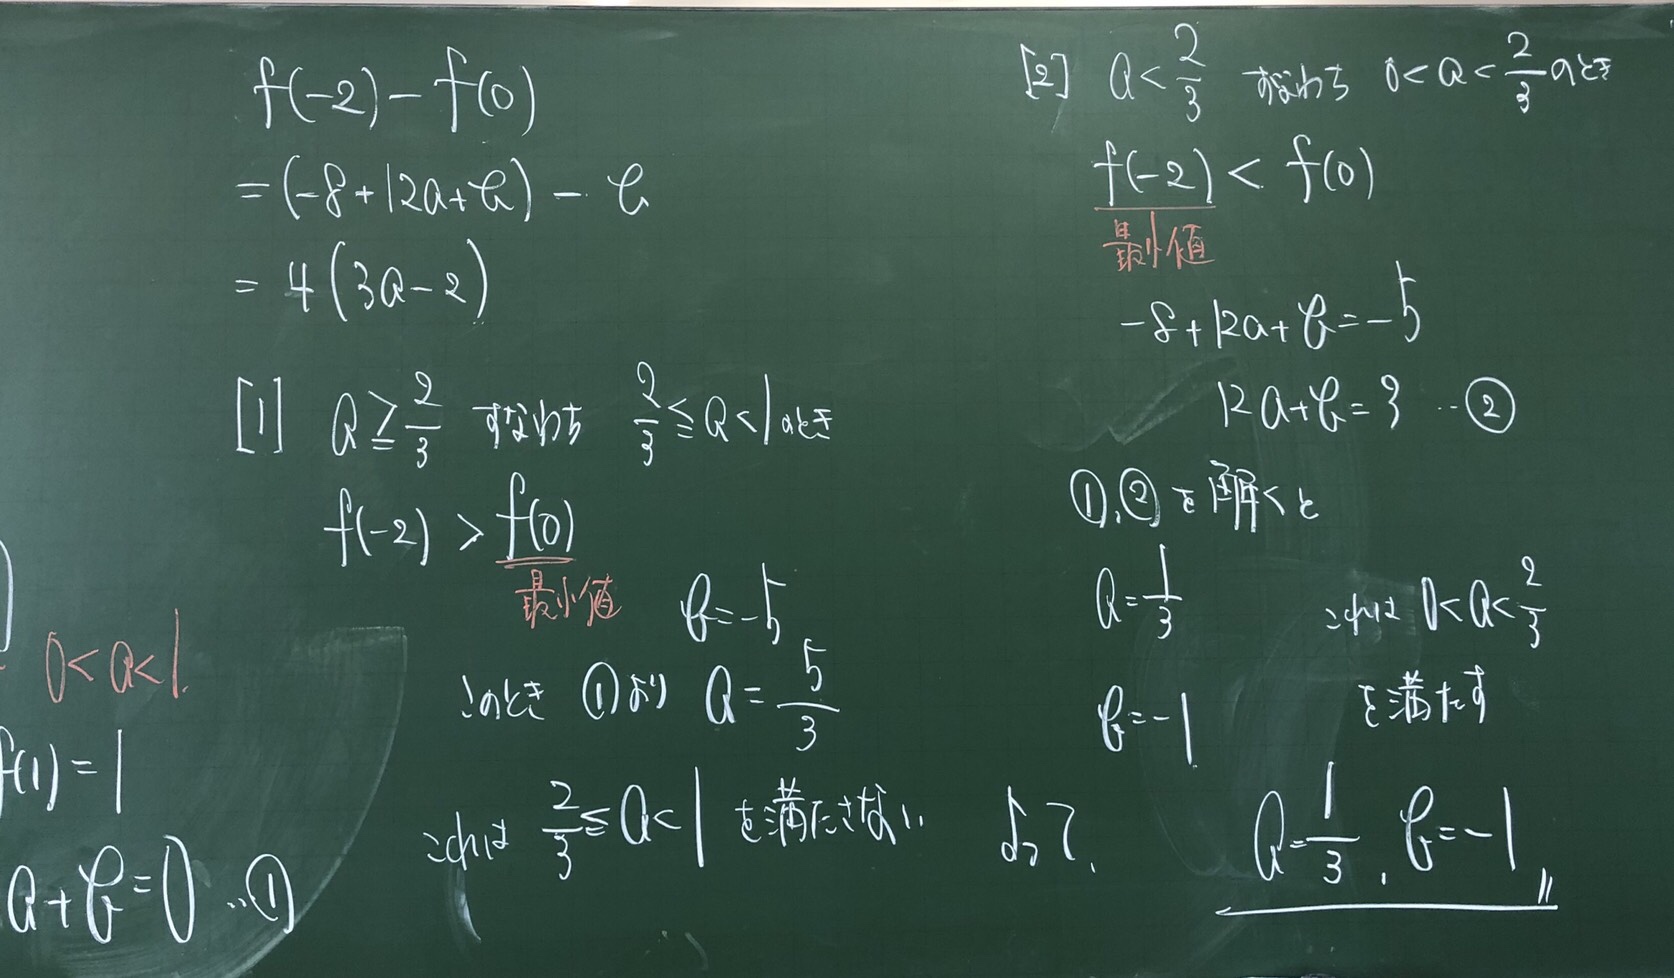 0<a<1.
f(1)=1
a+b=0 …①
f(-2)-f(0)
=(-8+12a+b)-b
=4(3a-2)
[1] a≧2/3 すなわち 2/3≦a<1のとき
f(-2)>f(0)
最小値
b=-5
このとき ①より a=5/3
これは 2/3≦a<1 を満たさない
[2] a<2/3 すなわち 0<a<2/3のとき
f(-2)<f(0)
最小値
-8+12a+b=-5
12a+b=3 …②
①,②を解くと
a=1/3 これは 0<a<2/3
b=-1 を満たす
よって, a=1/3, b=-1